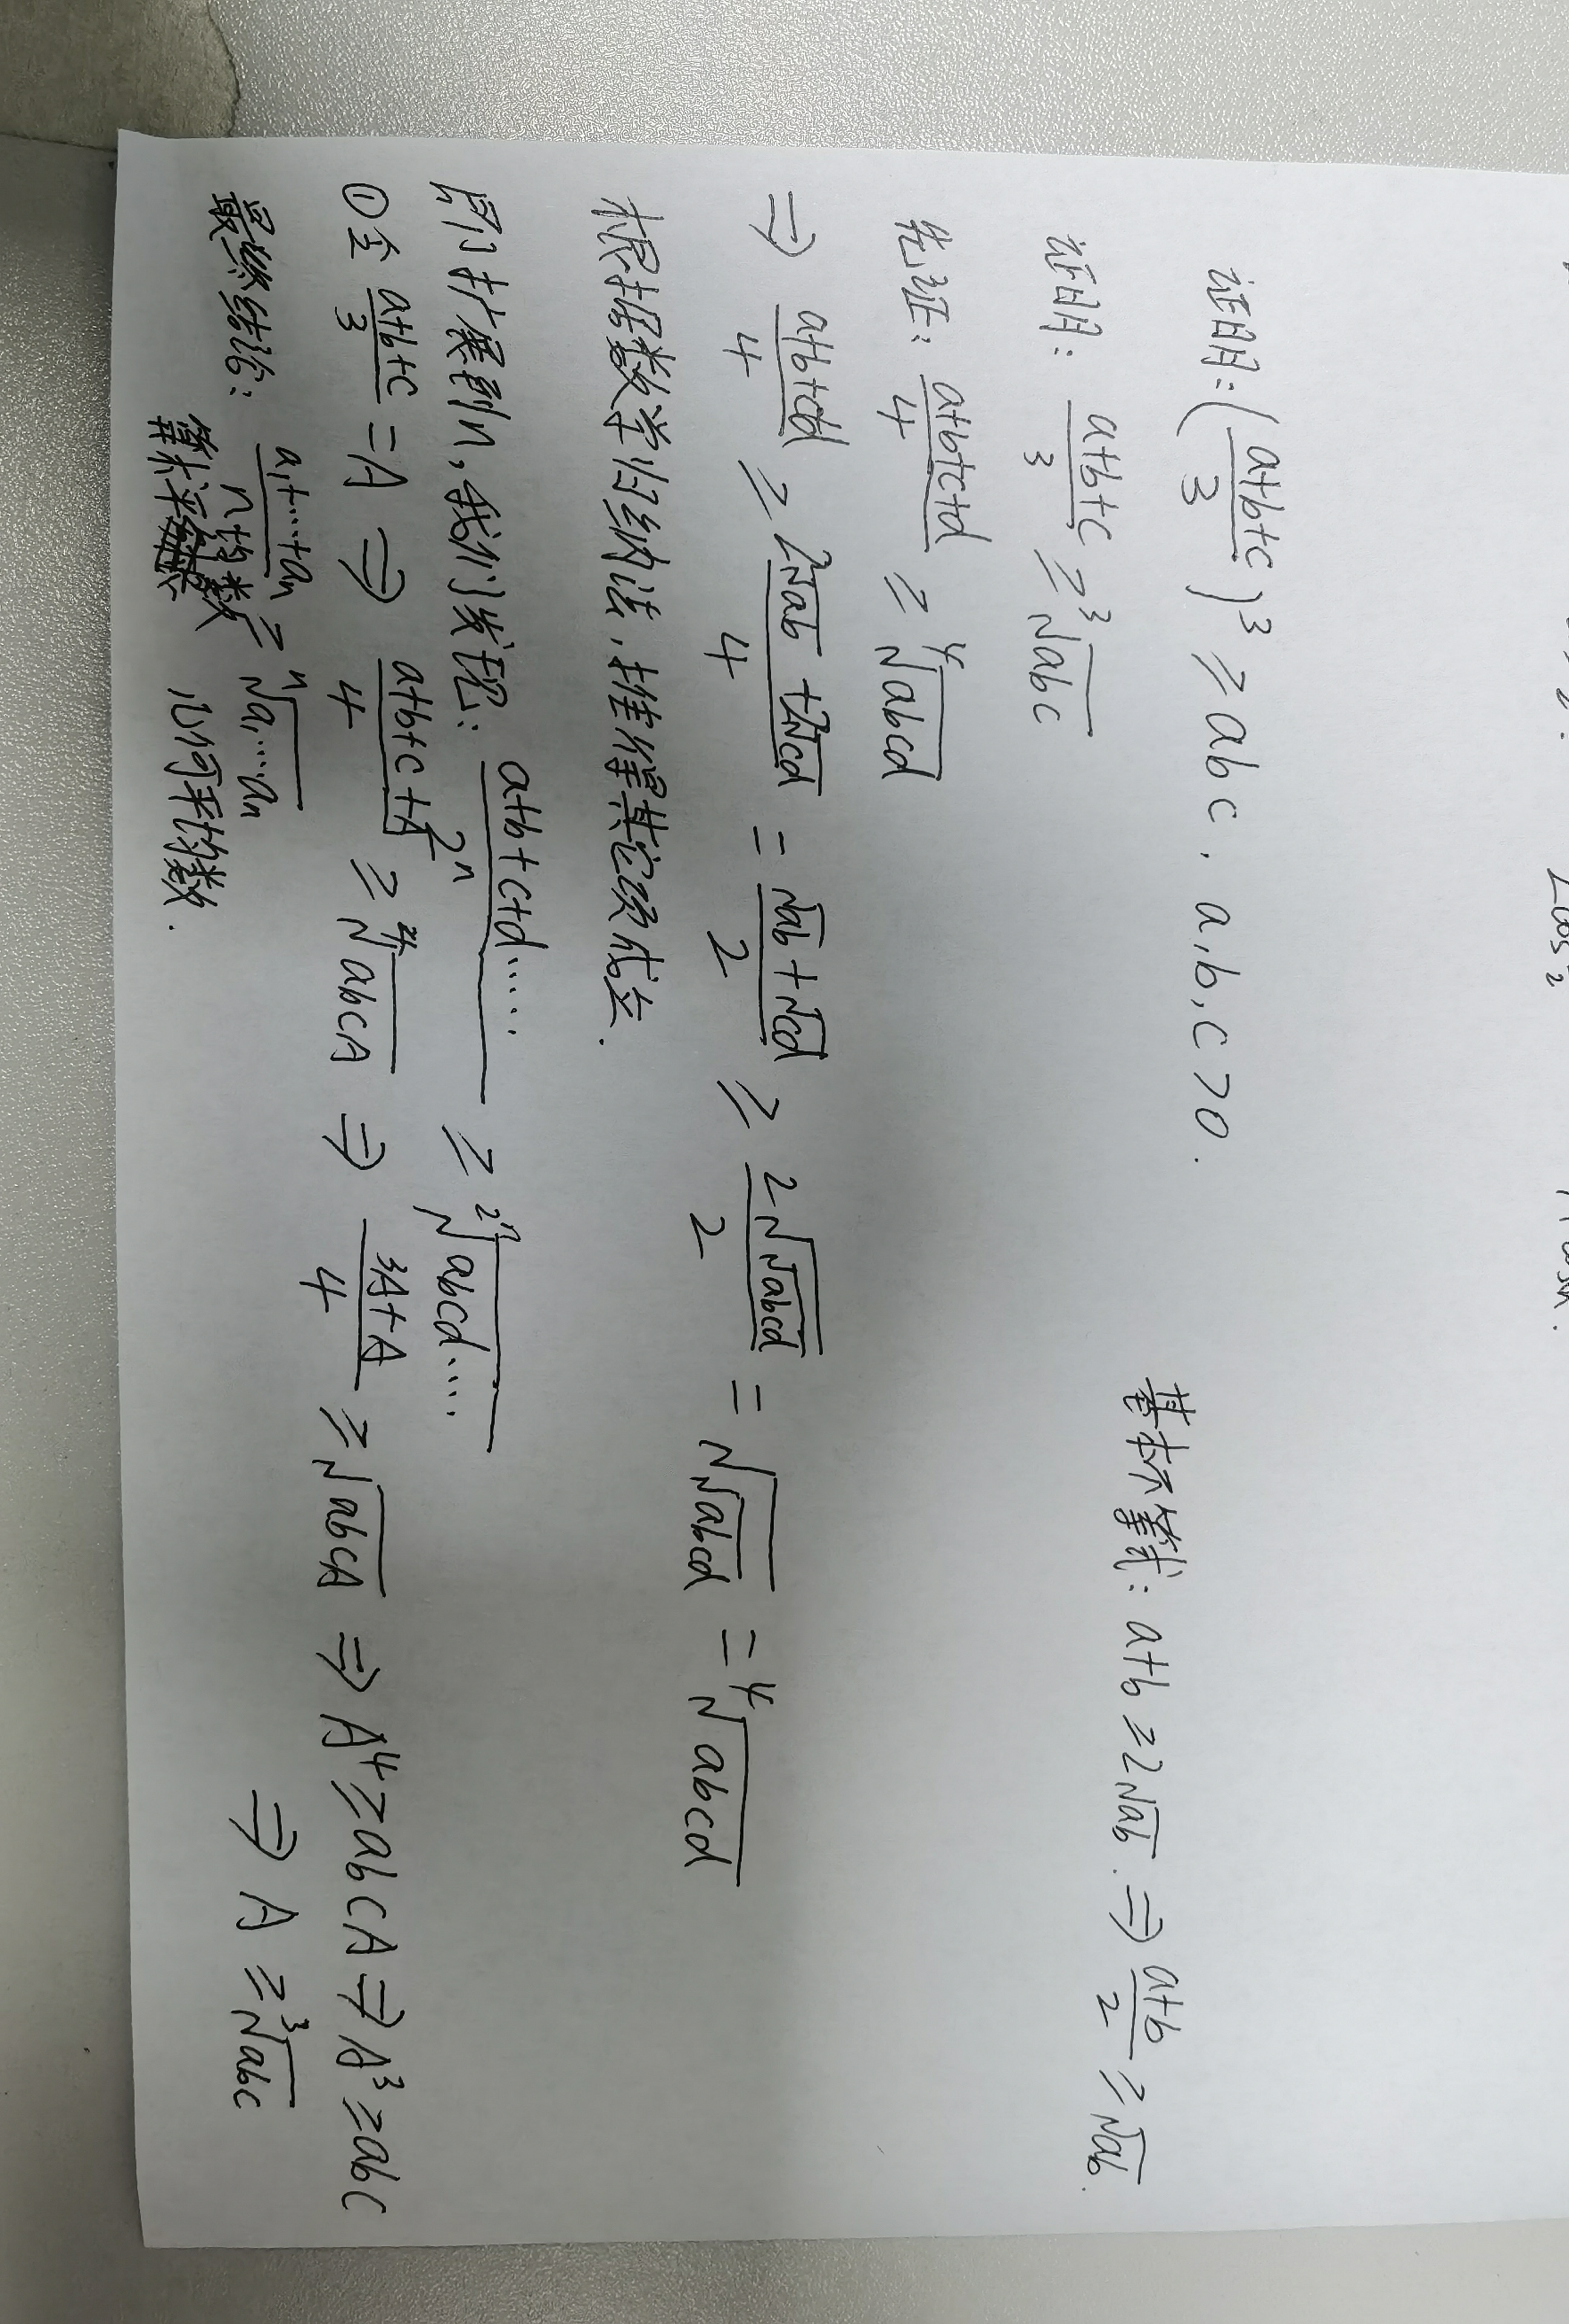 证明：(a+b+c/3)³ ≥ abc，a,b,c>0.
基本不等式：a+b≥2√ab. ⇒ a+b/2 ≥ √ab.
证明：a+b+c/3 ≥ ³√abc
先证：a+b+c+d/4 ≥ ⁴√abcd
⇒ a+b+cd/4 ≥ 2√ab+2√cd/4 = √ab+√cd/2 ≥ 2√√abcd/2 = √√abcd = ⁴√abcd
根据数学归纳法，推得其它项成立.
即扩展到n，我们发现：a+b+c+d……/2ⁿ ≥ ²ⁿ√abcd……
①令 a+b+c/3 = A ⇒ a+b+c+A/4 ≥ ⁴√abcA ⇒ 3A+A/4 ≥ √abcA ⇒ A⁴≥abcA ⇒ A³≥abc
⇒ A ≥ ³√abc
最终结论：a₁+…+aₙ/n ≥ ⁿ√a₁…aₙ
算术平均数 几何平均数.